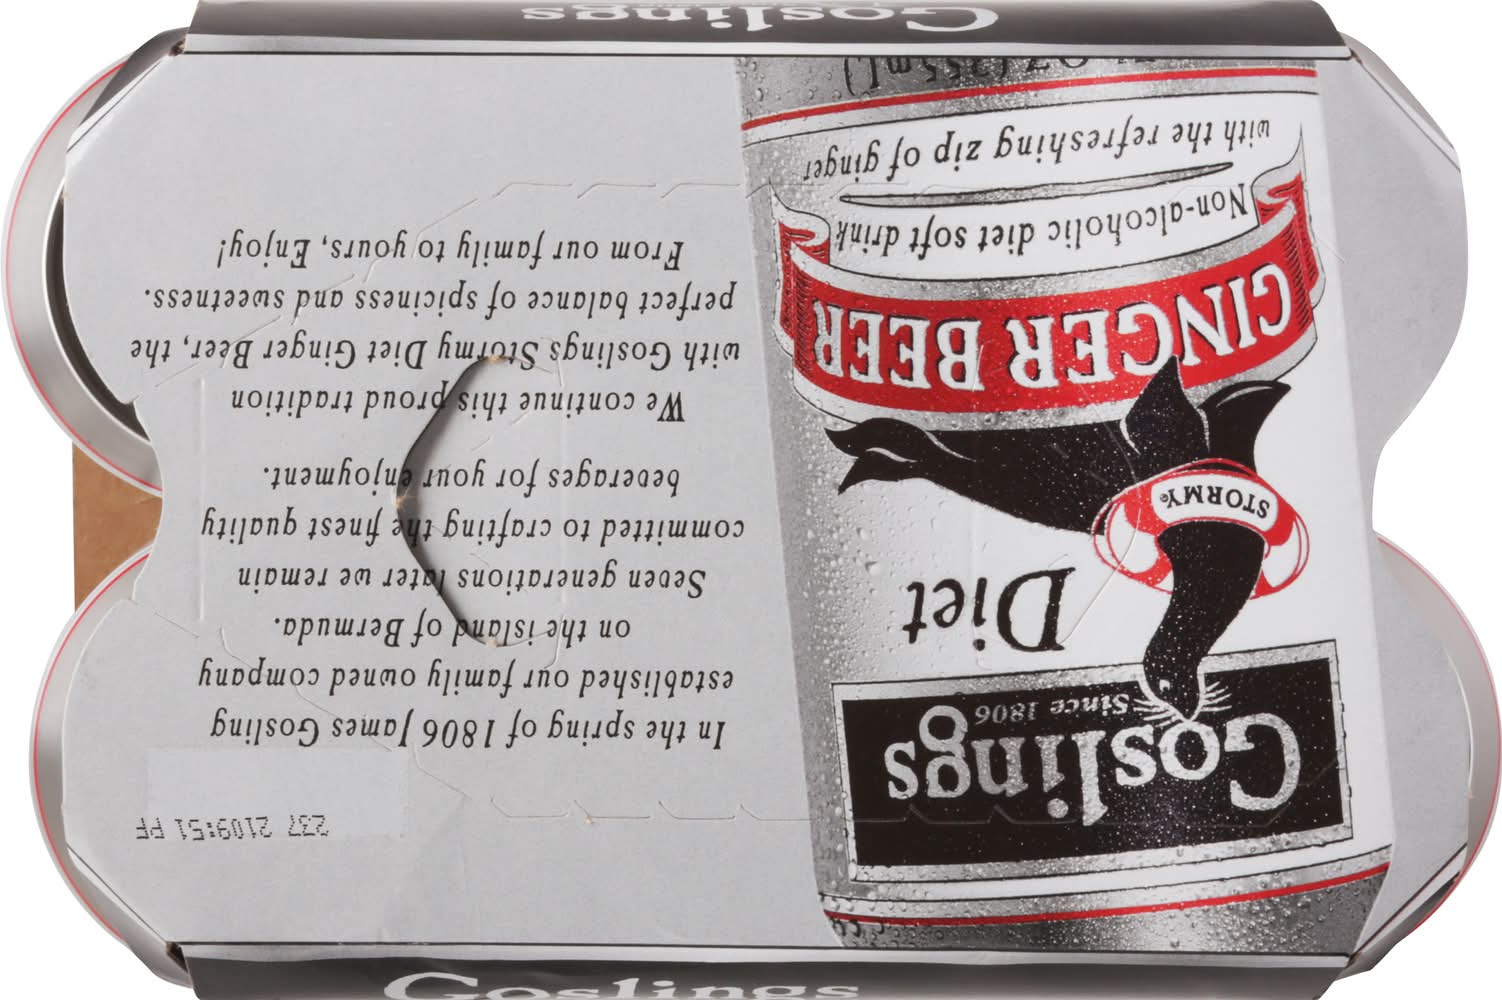 Goslings
237 2109:51 PF
In the spring of 1806 James Gosling
established our family owned company
on the island of Bermuda.
Seven generations later we remain
committed to crafting the finest quality
beverages for your enjoyment.
We continue this proud tradition
with Goslings Stormy Diet Ginger Beer, the
perfect balance of spiciness and sweetness.
From our family to yours, Enjoy!
Goslings
Since 1806
Diet
STORMY®
GINGER BEER
Non-alcoholic diet soft drink
with the refreshing zip of ginger
(355mL)
Goslings